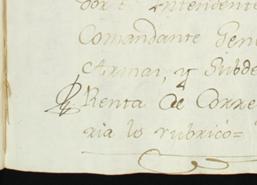 por el Intendente
Comandante Gen
Armas, y Subde
Renta de Corre
ria lo rubricò=